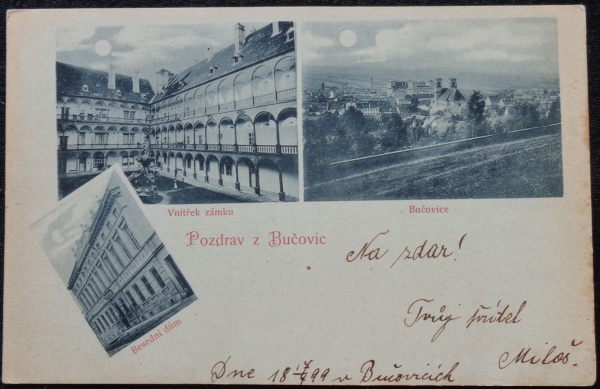 Vnitřek zámku
Bučovice
Besední dům
Pozdrav z Bučovic
Na zdar!
Tvůj přítel
Miloš.
Dne 18 99 v Bučovicích